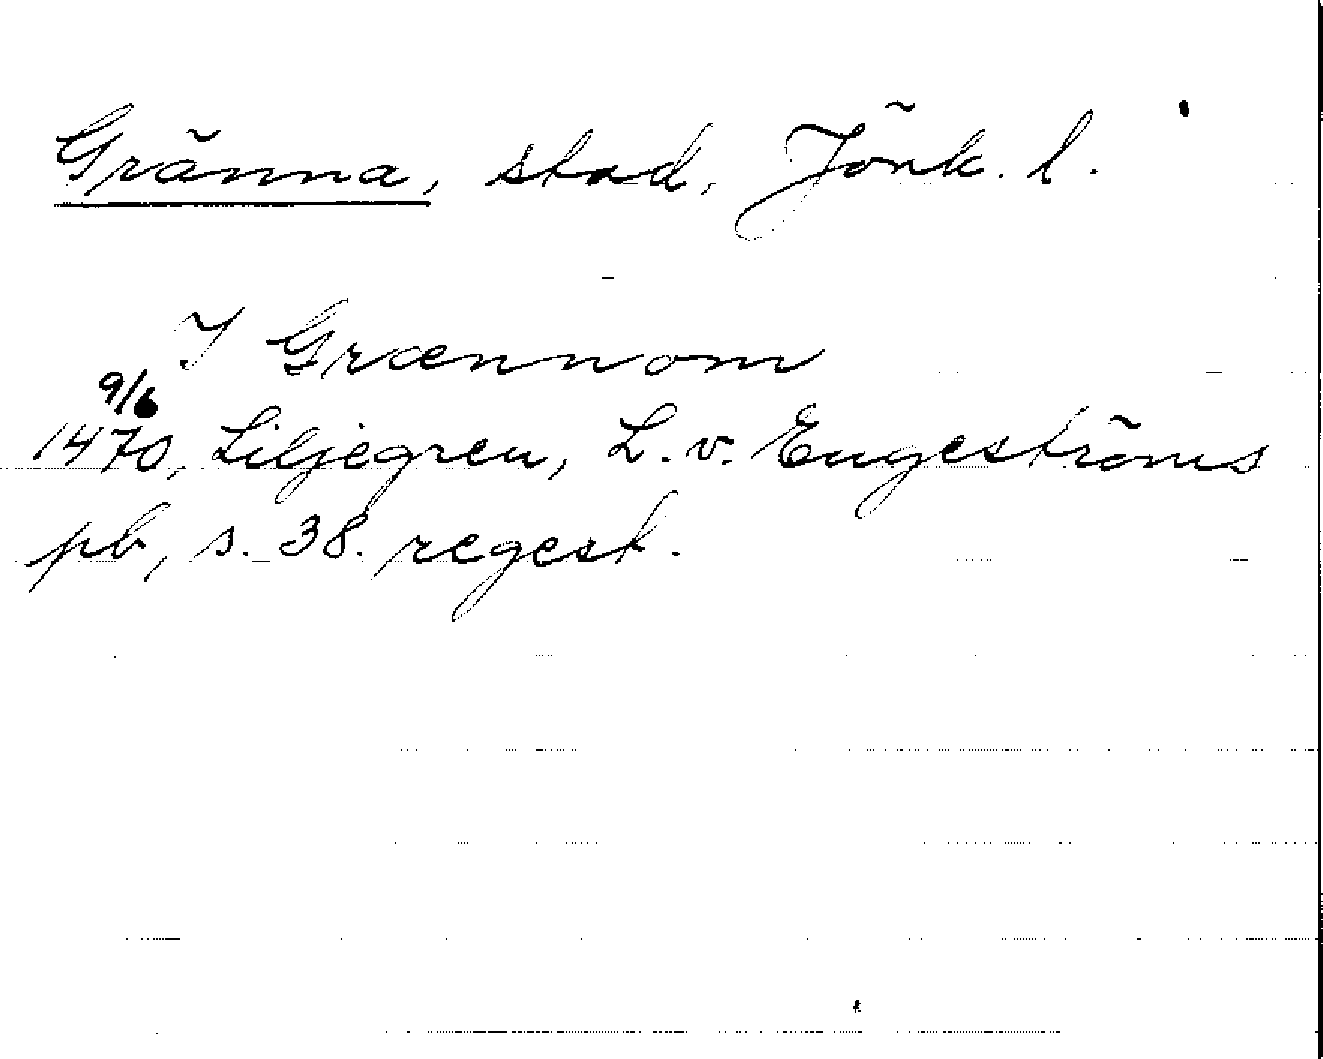 Gränna, stad, Jönk. l.
I Grænnom
9/6
1470, Liljegren, L. v. Engeströms
pb, s. 38. regest.